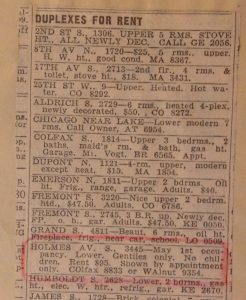 DUPLEXES FOR RENT
2ND ST S., 1306. UPPER 5 RMS. STOVE
HT., ALL NEWLY DEC. CALL GE 2056.
8TH AV N., 1720—$25, 5 rms., upper.
H. W. ht., good cond. MA 8367.
17TH AV S., 2713—2nd flr. 4 rms. &
toilet, stove ht., $18. MA 3431.
25TH ST W., 9—Upper. Heated. Hot wa-
ter. CO 8292.
ALDRICH S., 2729—6 rms., heated 4-plex,
newly decorated, $50. CO 8272.
CHICAGO NEAR LAKE—Lower modern 7
rms. Call Owner, AT 6954.
COLFAX S., 1814—Upper 3 bedrms., 2
baths, maid's rm. & bath, gas ht.
Garage. Mt. Vogt, BR 6565, Appt.
DUPONT N., 1121—4 rm., upper, modern
except heat, $10. MA 1854.
EMERSON N., 1811—Upper 2 bdrms. Oil
ht. Frig., range, garage. Adults. $40.
FREMONT S., 3220—Nice upper 2 bdrm.
Adults. $47.50. CO
FREMONT S., 2745, 3 B.R. up. Newly dec.
FP. o. h., gar. Adults, $47.50, KE 0050.
GRAND S., 4811—Beaut., 6 rms., oil ht.
Fireplace, frig., near car, school, LO 0509.
HOLMES AV. S., 3445—May 1st occu-
pancy. Lower. Gentiles only. No chil-
dren. Rent $95. Shown by appointment
only. COlfax 8833 or WAlnut 9354.
HUMBOLDT S., 2628—Lower, 2 bdrms., gas
ht., elec. W. gar. KE 2670.
JAMES S., 1728—